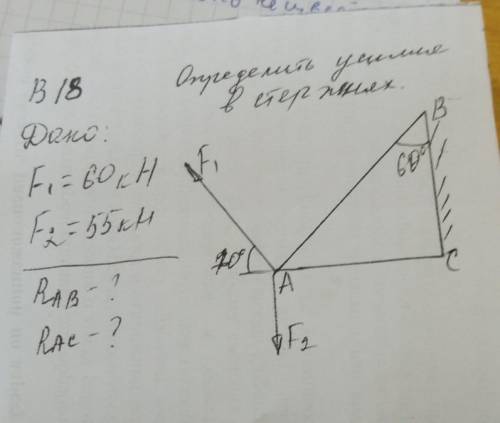 Определить усилия
в стержнях.
В 18
Дано:
F₁ = 60 кН
F₂ = 55 кН
R_AB - ?
R_AC - ?
F₁
B
60°
A
C
F₂